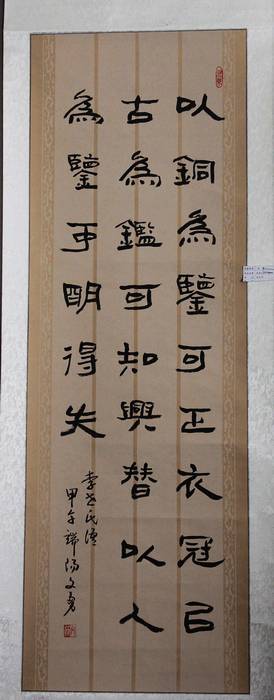 以銅為鑒可正衣冠㠯
古為鑑可知興替以人
為鑒可明得失
李世民語
甲午端陽文勇